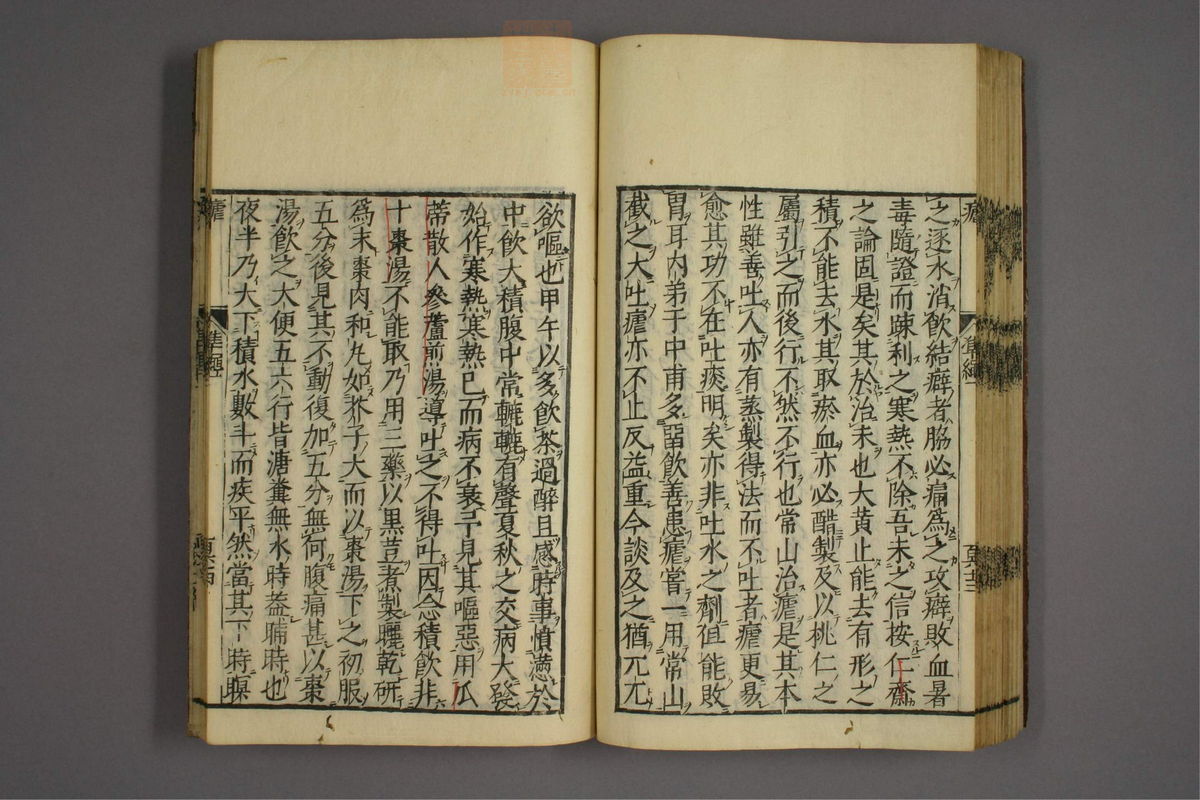 之逐水消飲結癖者脇必痛爲之攻癖敗血暑
毒隨證而踈利之寒熱不除吾未之信按仁齋
之論固是矣其於治未也大黃止能去有形之
積不能去水其取瘀血亦必醋製及以桃仁之
屬引之而後行不然不行也常山治瘧是其本
性雖善吐人亦有蒸製得法而不吐者瘧更易
愈其功不在吐痰明矣亦非吐水之劑徂能敗
胃耳內弟于中甫多留飲善患瘧嘗一用常山
截之大吐瘧亦不止反益重今談及之猶兀兀
欲嘔也甲午以多飲茶過醉且感時事憤懣於
中飲大積腹中常轆轆有聲夏秋之交病大發
始作寒熱寒熱已而病不衰予見其嘔惡用瓜
蒂散人參蘆煎湯導吐之不得吐因念積飲非
十棗湯不能取乃用三藥以黑豆煮製曬乾研
爲末棗肉和丸如芥子大而以棗湯下之初服
五分後見其不動復加五分無何腹痛甚以棗
湯飲之大便五六行皆溏糞無水時蓋晡時也
夜半乃大下積水數斗而疾平然當其下時瞑